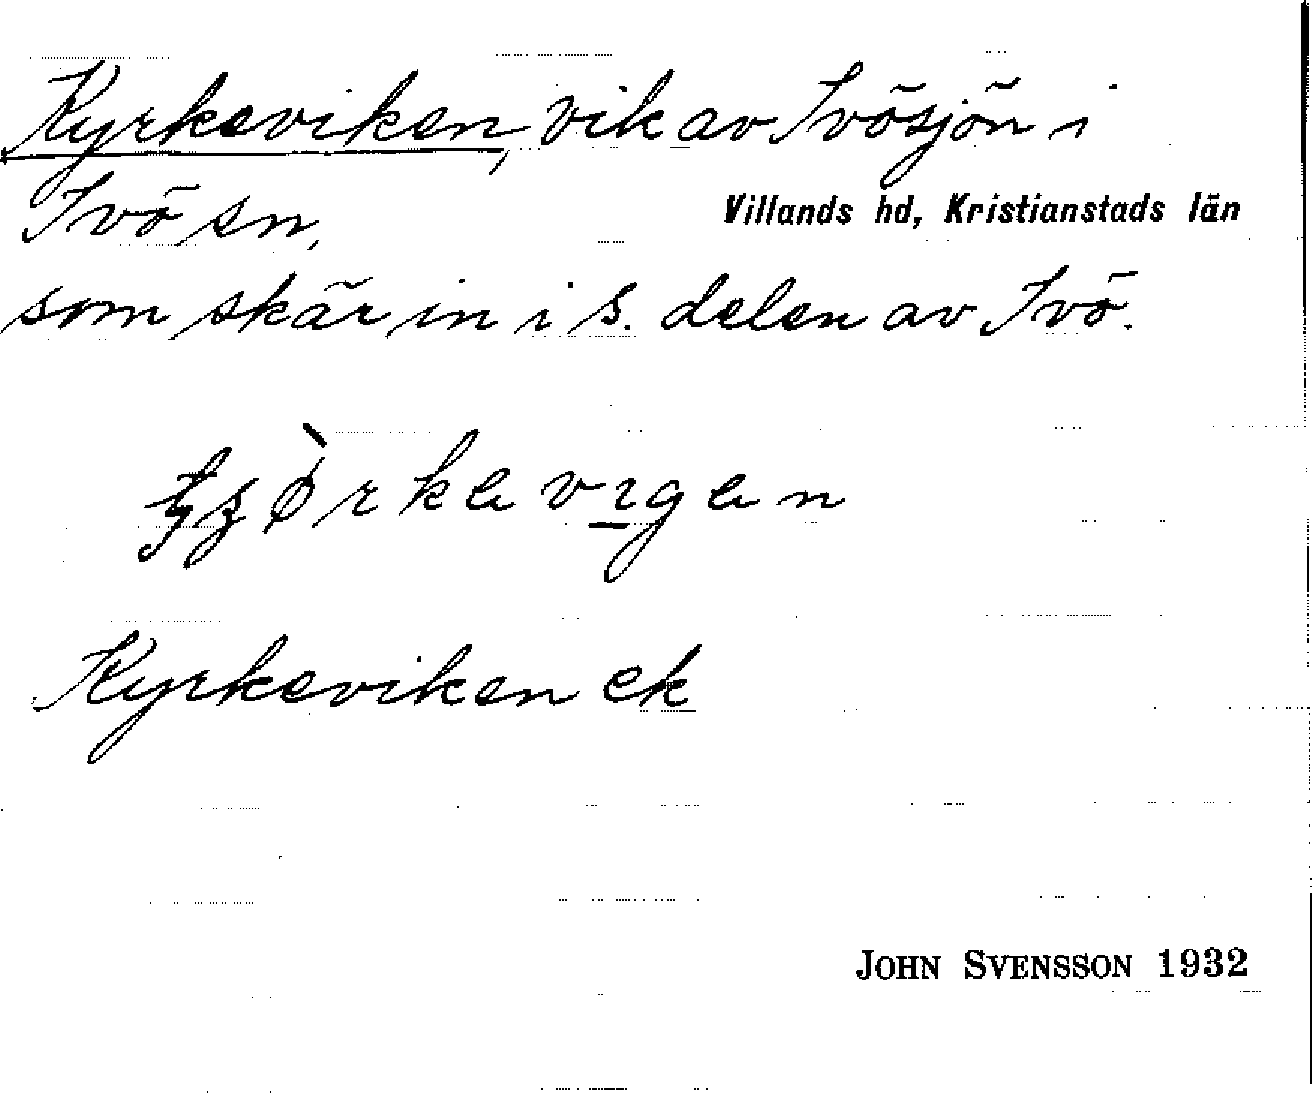 Kyrkeviken, vik av Ivösjön i
Ivö sn, Villands hd, Kristianstads län
som skär in i S. delen av Ivö.
Kyrkeviken ek
JOHN SVENSSON 1932